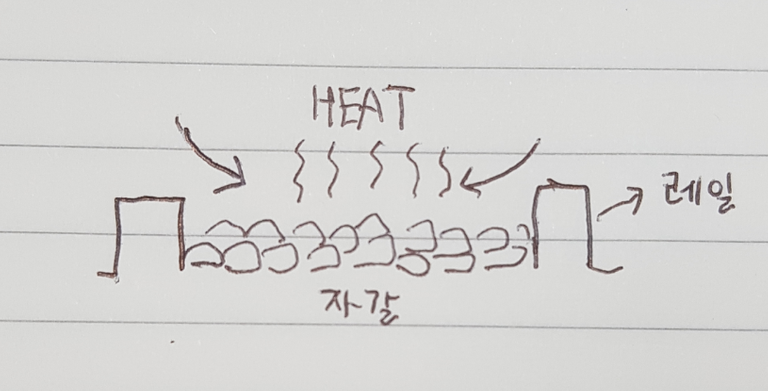 HEAT
레일
자갈